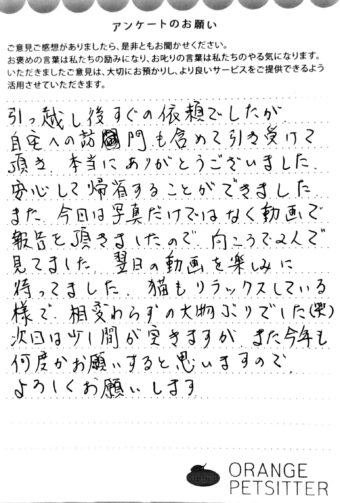 アンケートのお願い
ご意見ご感想がありましたら、是非ともお聞かせください。
お褒めの言葉は私たちの励みになり、お叱りの言葉は私たちのやる気になります。
いただきましたご意見は、大切にお預かりし、より良いサービスをご提供できるよう
活用させていただきます。
引っ越し後すぐの依頼でしたが
自宅への訪問も含めて引き受けて
頂き、本当にありがとうございました。
安心して帰省することができました
また、今回は写真だけではなく動画で
報告を頂きましたので、向こうで2人で
見てました。翌日の動画を楽しみに
待ってました。猫もリラックスしている
様で、相変わらずの大物ぶりでした(笑)
次回は少し間が空きますが、また今年も
何度かお願いすると思いますので、
よろしくお願いします
ORANGE
PETSITTER